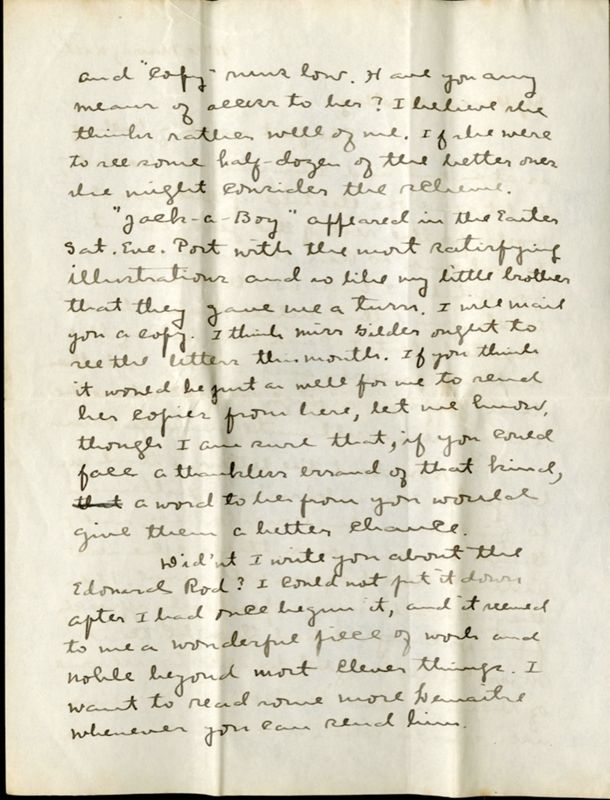 and "copy" runs low. Have you any
means of access to her? I believe she
thinks rather well of me. If she were
to see some half-dozen of the better ones
she might consider the scheme.
"Jack-a-Boy" appeared in the Easter
Sat. Eve. Post with the most satisfying
illustrations and so like my little brother
that they gave me a turn. I will mail
you a copy. I think Miss Gilder ought to
see the letters this month. If you think
it would be just as well for me to send
her copies from here, let me know,
though I am sure that, if you could
face a thankless errand of that kind,
that a word to her from you would
give them a better chance.
Did'nt I write you about the
Edouard Rod? I could not put it down
after I had once begun it, and it seemed
to me a wonderful piece of work and
noble beyond most clever things. I
want to read some more Lemaitre
whenever you can send him.